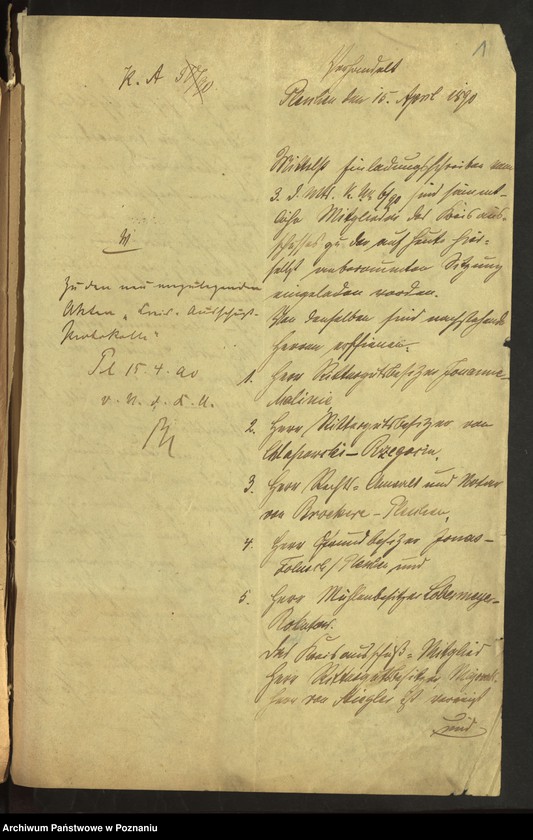 1
K. A 517/90
Verhandelt
Pleschen den 15. April 1890
Mittelst Einladungsschreiben vom
3. d. Mts. K. A. 6/90 sind sämmt-
liche Mitglieder des Kreis aus-
schusses zu der auf heute hier-
selbst anberaumten Sitzung
eingeladen worden.
Von denselben sind nachstehende
Herren erschienen:
1. Herr Rittergutsbesitzer Jouanne-
Malinie
2. Herr Rittergutsbesitzer von
Chlapowski-Rzegocin,
3. Herr Rechts-Anwalt und Notar
von Broekere-Pleschen,
4. Herr Grundbesitzer
Pleschen und
5. Herr Mühlenbesitzer Obermeyer-
Das Kreisausschuß-Mitglied
Herr Rittergutsbesitzer
Herr von Stiegler ist verreist
und
Zu den neu anzulegenden
Akten "Kreis-Ausschuß-
Protokolle"
Pl 15.4.90
d. K. A.
Archiwum Państwowe w Poznaniu